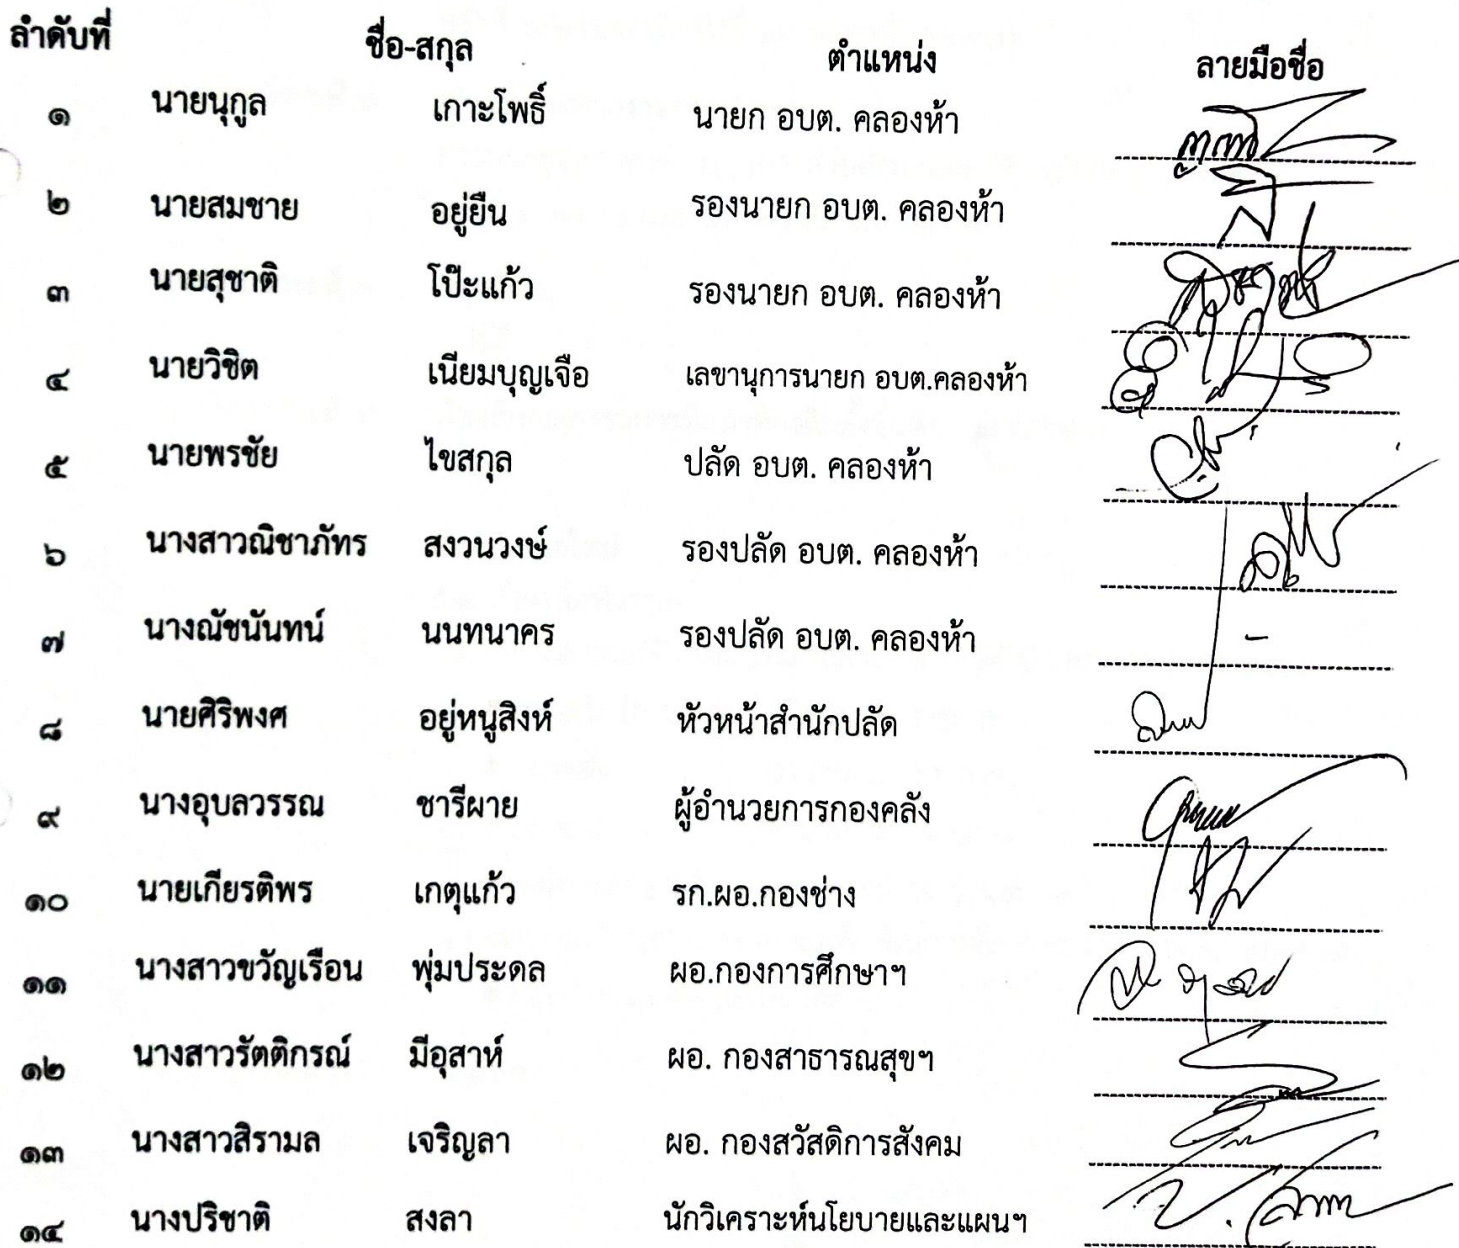 ลำดับที่ ชื่อ-สกุล ตำแหน่ง ลายมือชื่อ
๑ นายนุกูล เกาะโพธิ์ นายก อบต. คลองห้า
๒ นายสมชาย อยู่ยืน รองนายก อบต. คลองห้า
๓ นายสุชาติ โป๊ะแก้ว รองนายก อบต. คลองห้า
๔ นายวิชิต เนียมบุญเจือ เลขานุการนายก อบต.คลองห้า
๕ นายพรชัย ไขสกุล ปลัด อบต. คลองห้า
๖ นางสาวณิชาภัทร สงวนวงษ์ รองปลัด อบต. คลองห้า
๗ นางณัชนันทน์ นนทนาคร รองปลัด อบต. คลองห้า -
๘ นายศิริพงศ อยู่หนูสิงห์ หัวหน้าสำนักปลัด
๙ นางอุบลวรรณ ชารีผาย ผู้อำนวยการกองคลัง
๑๐ นายเกียรติพร เกตุแก้ว รก.ผอ.กองช่าง
๑๑ นางสาวขวัญเรือน พุ่มประดล ผอ.กองการศึกษาฯ
๑๒ นางสาวรัตติกรณ์ มีอุสาห์ ผอ. กองสาธารณสุขฯ
๑๓ นางสาวสิรามล เจริญลา ผอ. กองสวัสดิการสังคม
๑๔ นางปริชาติ สงลา นักวิเคราะห์นโยบายและแผนฯ